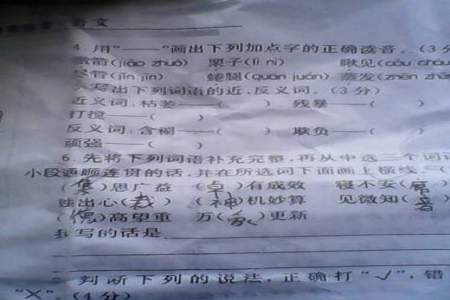 语文
4. 用“——”画出下列加点字的正确读音。(3分
(jiāo zhuó) 栗子(lì nì) 瞅见(cǒu chǒu
尽管(jǐn jìn) 蜷腿(quán juǎn) 蒸发(zhēn zhē
写出下列词语的近、反义词。(3分)
近义词：枯萎——( ) 残暴——(
打搅——( )
反义词： ——( ) 欺负——(
顽强——( )
6. 先将下列词语补充完整，再从中选三个词语
小段通顺连贯的话，并在所选词下面画上横线。(
( )思广益 (卓)有成效 寝不安(
独出心( ) (神)机妙算 见微知(著
( )高望重 万( )更新
我写的话是
判断下列的说法，正确打“√”，错
“×”。(4分)